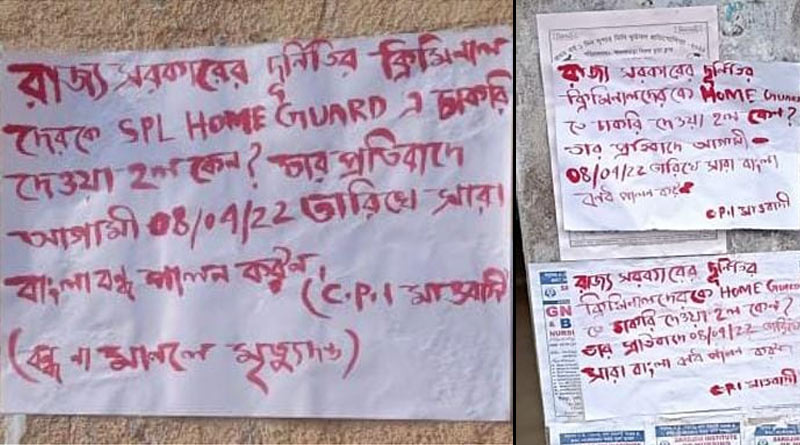 রাজ্য সরকারের দুর্নিতির ক্রিমিনাল
দেরকে SPL HOME GUARD এ চাকরি
দেওয়া হল কেন? তার প্রতিবাদে
আগামী 08/04/22 তারিখে সারা
বাংলা বন্ধ পালন করুন
(C.P.I মাওবাদী
(বন্ধ না মানলে মৃত্যুদণ্ড)
রাজ্য সরকারের দুর্নিতির
ক্রিমিনালদেরকে HOME GUARD
তে চাকরি দেওয়া হল কেন?
তার প্রতিবাদে আগামী
08/04/22 তারিখে সারা বাংলা
বন্ধ পালন করুন
C.P.I মাওবাদী
রাজ্য সরকারের দুর্নিতির
ক্রিমিনালদেরকে HOME GUARD
তে চাকরি দেওয়া হল কেন?
তার প্রতিবাদে 08/04/22 তারিখে
সারা বাংলা বন্ধ পালন করুন
C.P.I মাওবাদী
GN
& B
NURS